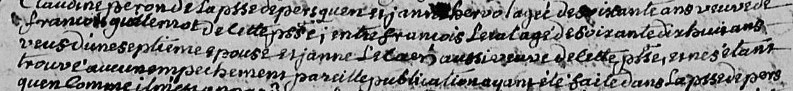 Claudine peron de la psse de persquen et janne hervo lagée de soixante ans veuve de
francois guillemot de cette psse j entre francois Le
veuf d'une septieme epouse et janne Le aussi veuve de cette psse, et ne s'etant
trouvé aucun empechement pareille publication ayant été faite dans la psse de pers
quen Comme il